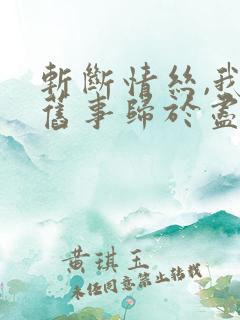 斬斷情絲,我
舊事歸於盡
黃琪玉
未经同意禁止转载